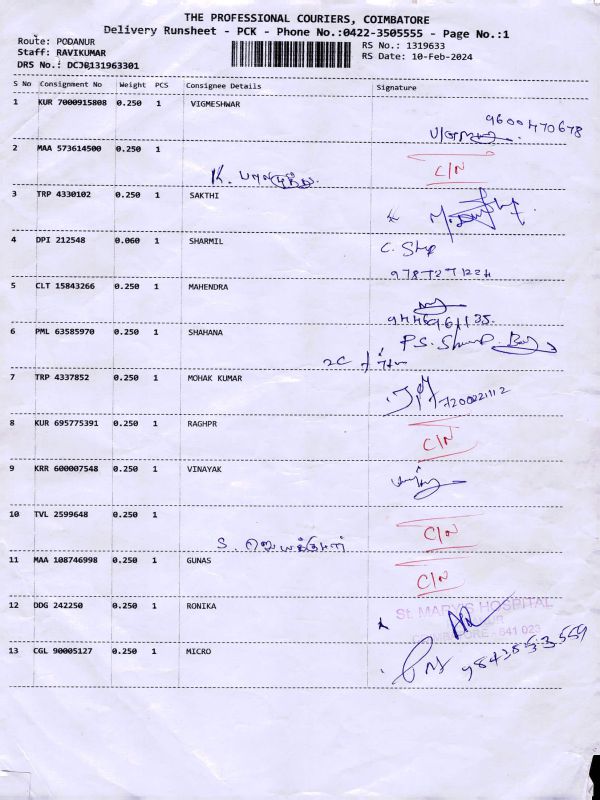 THE PROFESSIONAL COURIERS, COIMBATORE
Delivery Runsheet - PCK - Phone No.:0422-3505555 - Page No.:1
Route: PODANUR
RS No.: 1319633
Staff: RAVIKUMAR
RS Date: 10-Feb-2024
DRS No.: DCJB131963301
S No Consignment No Weight PCS Consignee Details Signature
1 KUR 7000915808 0.250 1 VIGMESHWAR
9600470678
2 MAA 573614500 0.250 1
C/N
K.
3 TRP 4330102 0.250 1 SAKTHI
4 DPI 212548 0.060 1 SHARMIL
C.
9787271224
5 CLT 15843266 0.250 1 MAHENDRA
9446961135
6 PML 63585970 0.250 1 SHAHANA
P.S.
2C
7 TRP 4337852 0.250 1 MOHAK KUMAR
7200021112
8 KUR 695775391 0.250 1 RAGHPR
C/N
9 KRR 600007548 0.250 1 VINAYAK
10 TVL 2599648 0.250 1
C/N
S.
11 MAA 108746998 0.250 1 GUNAS
C/N
12 DDG 242250 0.250 1 RONIKA
St. MARY'S HOSPITAL
641 023
13 CGL 90005127 0.250 1 MICRO
9843853559